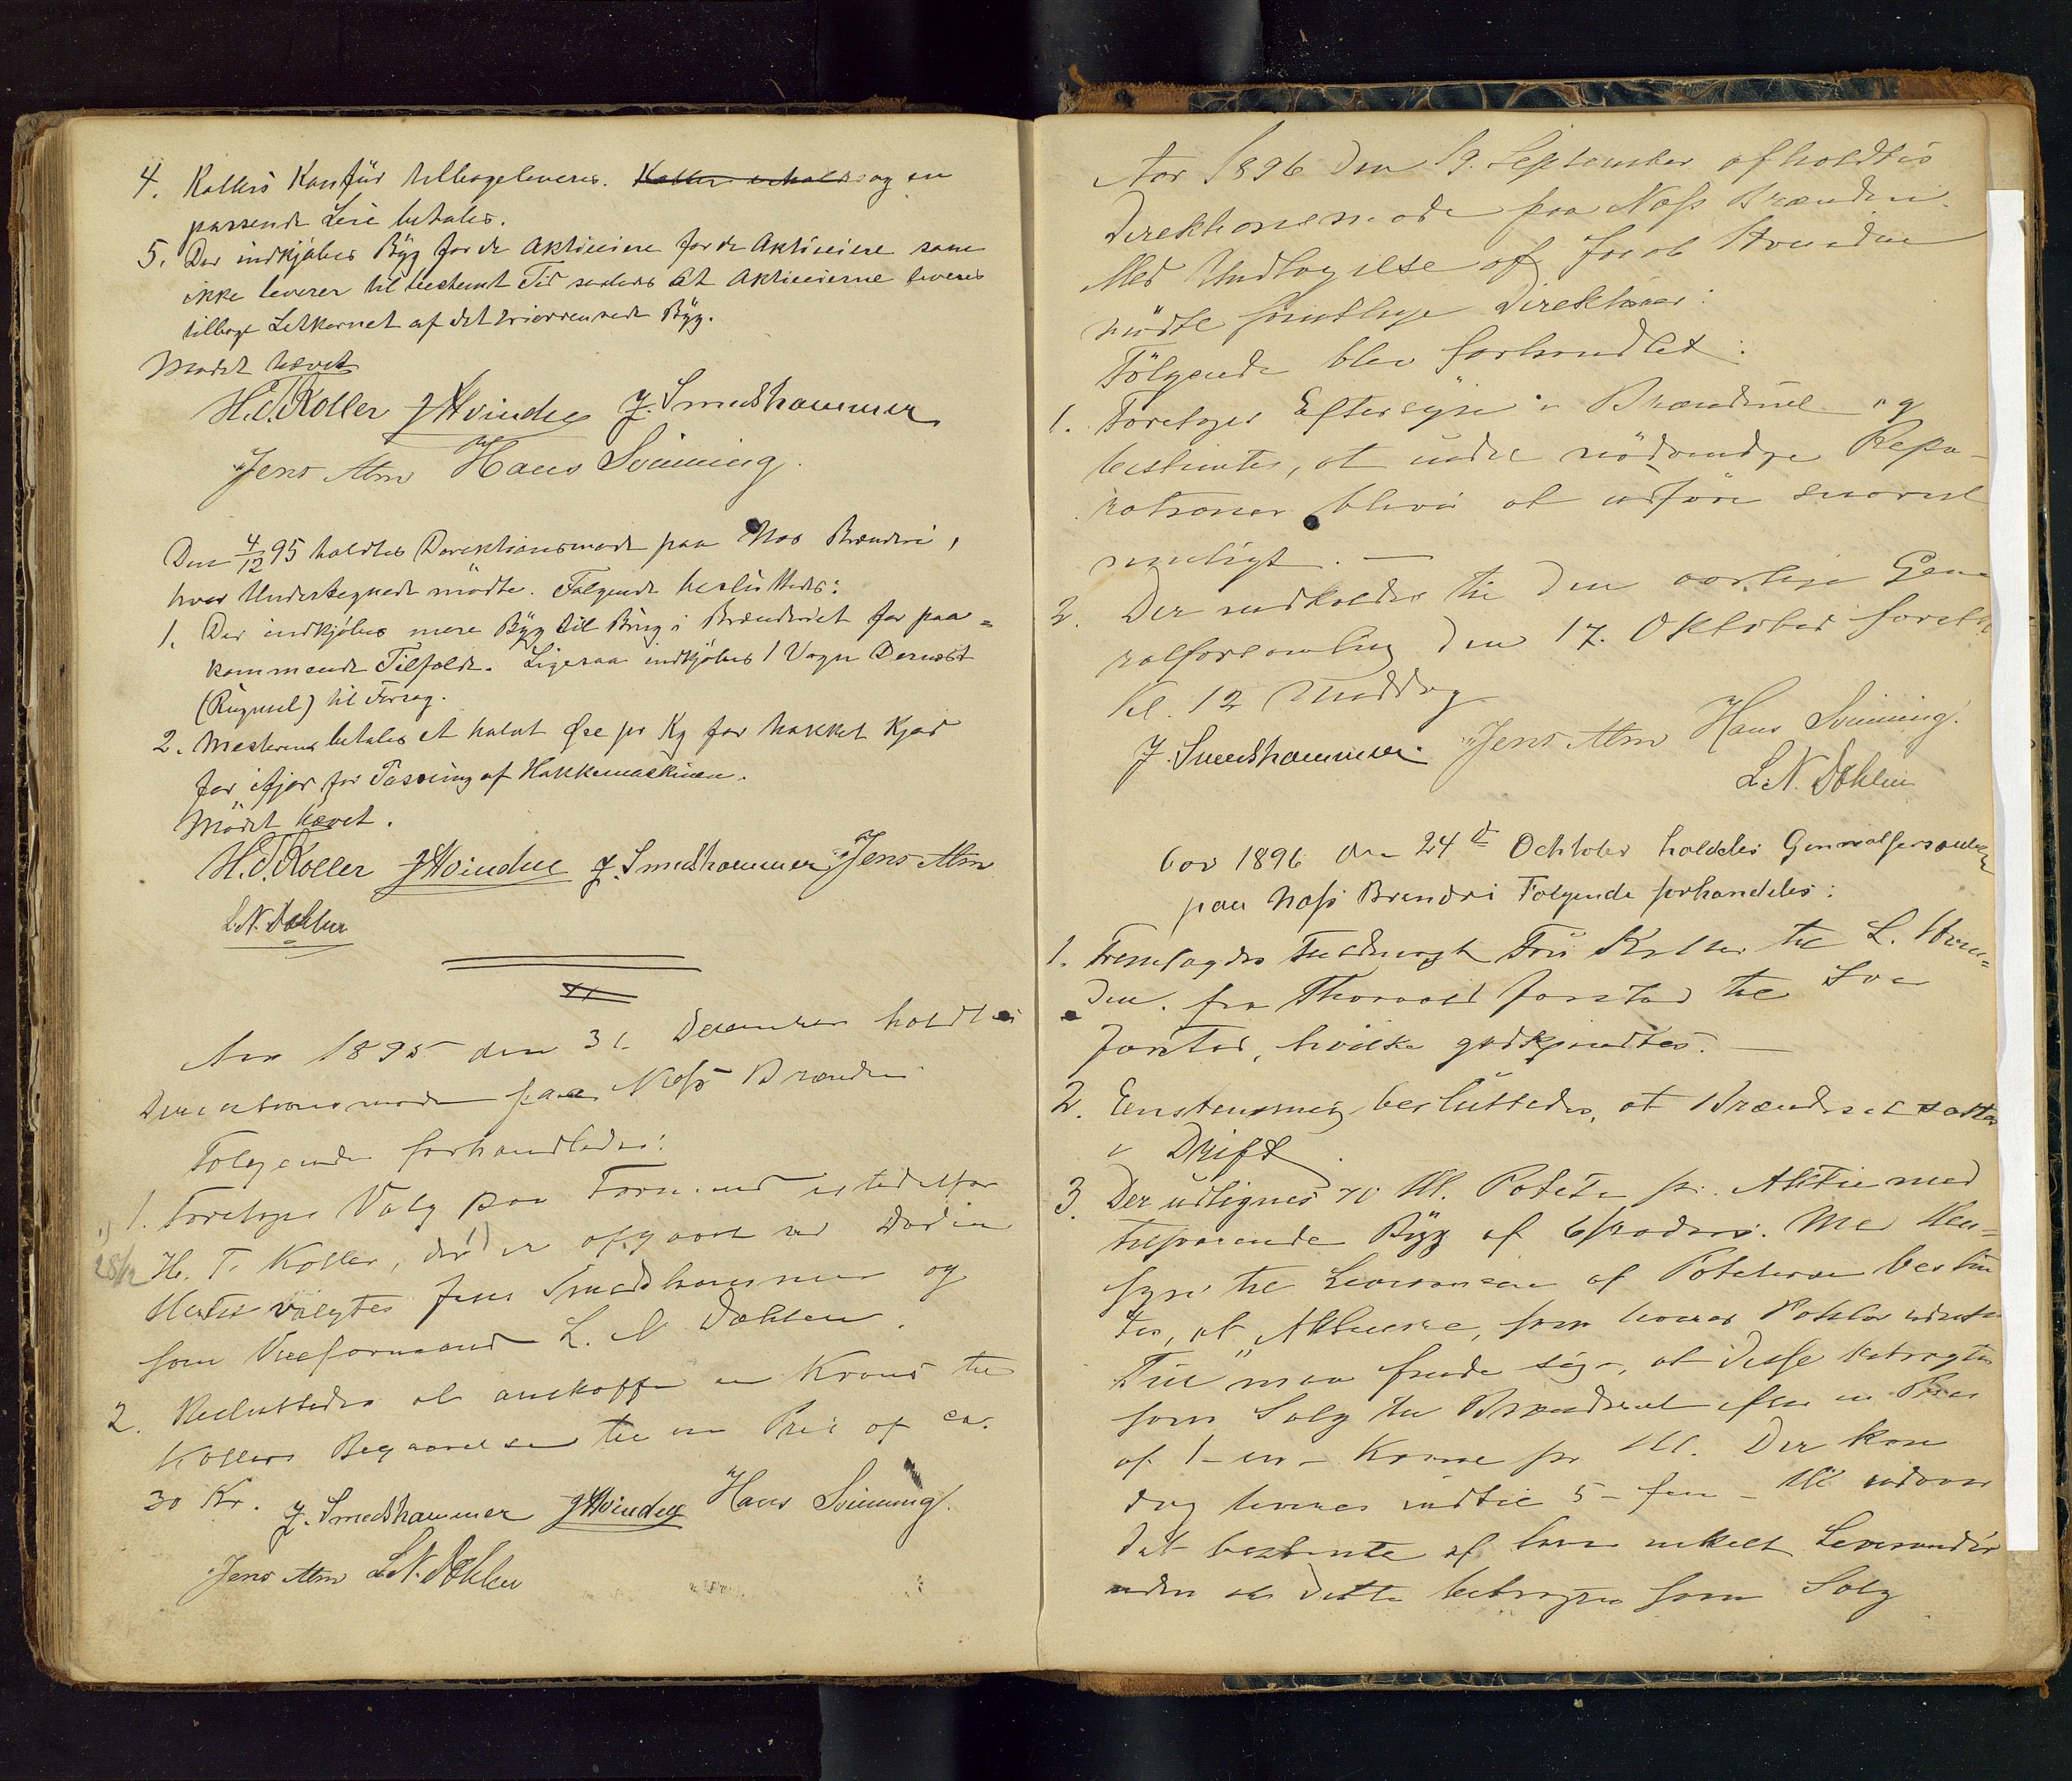 4. Kollers Kanfür tilbageleveres. Koller erholder og en
passende Leie betales.
5. Der indkjøbes Byg for de Aktieeiere for de Aktieeiere som
ikke leverer til bestemt Tid saaledes at Aktieeierne leveres
tilbage Letkornet af det Byg.
Mødet hævet
H.T. Koller JHvinden J. Smedshammer
Jens Alm Hans Svinning.
Den 4/12 95 holdtes Direktionsmøde paa Nes Brænderi,
hvor Undertegnede mödte. Følgende beslüttedes:
1. Der indkjøbes mere Byg til Brüg i Brænderiet for paa=
kommende Tilfælde. Ligesaa indkjøbes 1 Vogn
(Rügmel) til Forsøg.
2. Mesteren betales et halvt Øre pr Kg for hakket Kjød
for ifjor for Pasning af Hakkemaskinen.
Mödet hævet.
H.T. Koller JHvinden J. Smedshammer Jens Alm
L.N. Dæhlen
Aar 1895 den 31. December holdtes
Direktionsmøde paa Næss Brænderi
Følgende forhandledes:
1. Foretoges Valg paa Formand istedetfor
1) 28/12 H. T. Koller, der 1) er afgaaet ved Døden
Hertil valgtes Jens Smedshammer og
som Viceformand L. N. Dæhlen.
2. Besluttedes at anskaffe en Krans til
Kollers Begravelse til en Pris af ca.
30 Kr. J. Smedshammer JHvinden Hans Svinning.
Jens Alm L.N. Dæhlen
Aar 1896 den 19. September afholdtes
Direktionsmøde paa Næss Brænderi.
Med Undtagelse af Jacob Hvinden
mödte samtlige Direktører:
Fölgende blev forhandlet:
1. Foretoges Eftersyn i Brænderiet og
bestemtes, at endel nödvendige Repa-
rationer bliver at udføre snarest
muligt. —
2. Der indkaldes til den aarlige Gene
ralforsamling den 17. Oktober førstk.
Kl. 12 Middag
J. Smedshammer. Jens Alm Hans Svinning.
L.N. Dæhlen
Aar 1896 den 24de Ochtober holdtes Generalforsamling
paa Næss Brenderi Følgende forhandeles:
1. Fremlagdes fra Koller til L. Hvin=
den. fra Thorvald Jønstad til
Jønstad, hvilke godkjendtes. —
2. Eenstemmig beslüttedes, at Brænderiet sættes
i Drift.
3. Der udlignes 70 Hl. Poteter pr. Aktie med
tilsvarende Byg af 6 rader. Med Hen=
syn til Leverancen af Poteterne bestem
tes, at Aktieeiere, som leverer Poteter uden
Tür maa finde sig i, at disse betragtes
som Salg til Brænderiet efter en Pris
af 1 – en – Krone pr Hl. Der kan
dog leveres indtil 5 – fem – Hl udover
det bestemte af hver enkelt Leverandör
uden at dette betragtes som Salg